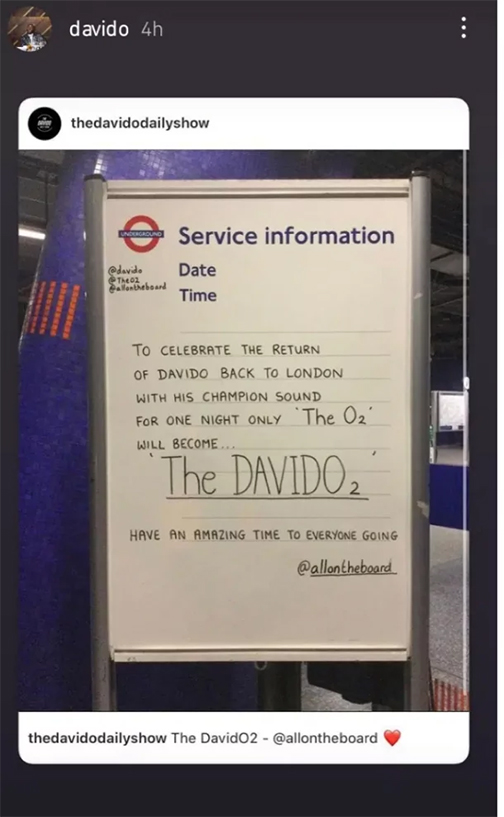 davido 4h
thedavidodailyshow
UNDERGROUND
Service information
@davido
@TheO2
@allontheboard
Date
Time
TO CELEBRATE THE RETURN
OF DAVIDO BACK TO LONDON
WITH HIS CHAMPION SOUND
FOR ONE NIGHT ONLY 'The O2'
WILL BECOME...
'The DAVIDO2'
HAVE AN AMAZING TIME TO EVERYONE GOING
@allontheboard
thedavidodailyshow The DavidO2 - @allontheboard ❤️